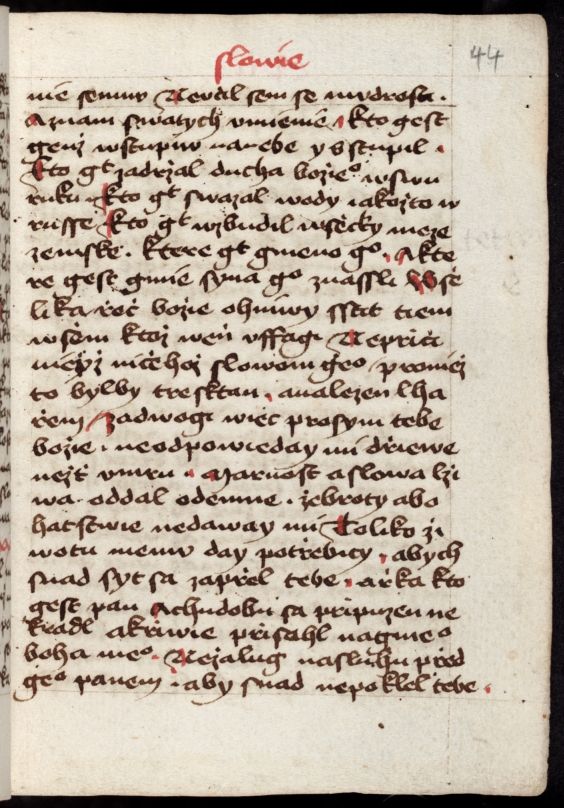 slowie
44
nie semnv Nevcil sem se mvdrosti.
A znam swatych vmienie. kto gest
genz wstupiw na nebe y sstupil.
kto gt zadrzal ducha bozieo w swu
ruku. kto gt swazal wody iakozto w
russe kto gt wzbudil wsecky meze
zemske. ktere gt gmeno go. A kte
re gest gmie syna go znassli Wse
lika rec bozie ohniwy sstit tiem
wsem ktoz wen vffagi Nepricí
nieyz nicehoz slowom geo proniez
to bylby tresktan. a nalezen lha
rem Zadwogi wiec prosym tebe
bozie. neodpowieday mi drziewe
nezt vmru. Marnost a slowa lzi
wa. oddal odemne. zebroty abo
hatstwie nedaway mi Toliko zi
wotu memv day potrebicy, abych
snad syt sa zaprel tebe. a rka kto
gest pan A chudobu sa pripuzen ne
kradl a kriwie prisahl na gmeo
boha meo. Nezalug na sluhu pred
geo panem. aby snad nepoklel tebe.